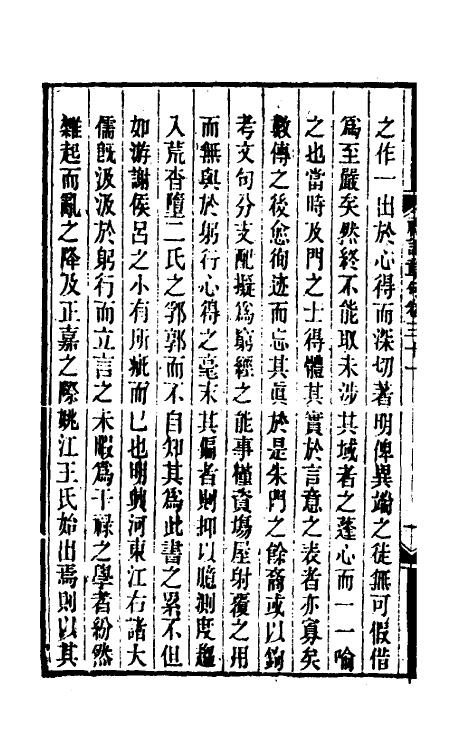 之作一出於心得而深切著明俾異端之徒無可假借
爲至嚴矣然終不能取未涉其域者之蓬心而一一喻
之也當時及門之士得體其實於言意之表者亦寡矣
數傳之後愈徇迹而忘其眞於是朱門之餘裔或以鉤
考文句分支配擬爲窮經之能事僅資塲屋射覆之用
而無與於躬行心得之毫末其偏者則抑以臆測度趨
入荒杳墮二氏之郛郭而不自知其爲此書之累不但
如游謝侯呂之小有所疵而已也明興河東江右諸大
儒旣汲汲於躬行而立言之未暇爲干祿之學者紛然
雜起而亂之降及正嘉之際姚江王氏始出焉則以其
禮記章句卷三十一